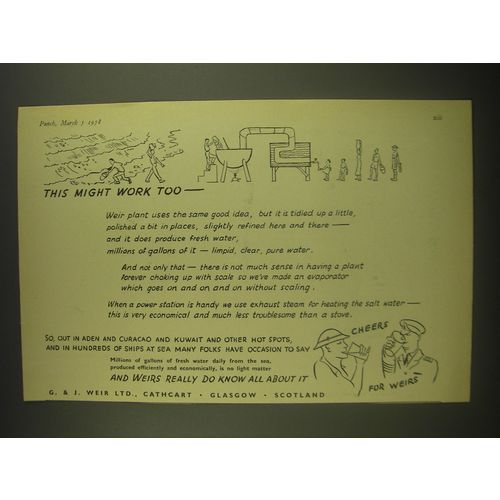 Punch, March 5 1958
xiii
THIS MIGHT WORK TOO —
Weir plant uses the same good idea, but it is tidied up a little,
polished a bit in places, slightly refined here and there —
and it does produce fresh water,
millions of gallons of it — limpid, clear, pure water.
And not only that — there is not much sense in having a plant
forever choking up with scale so we've made an evaporator
which goes on and on and on without scaling.
When a power station is handy we use exhaust steam for heating the salt water —
this is very economical and much less troublesome than a stove.
SO, OUT IN ADEN AND CURACAO AND KUWAIT AND OTHER HOT SPOTS,
AND IN HUNDREDS OF SHIPS AT SEA MANY FOLKS HAVE OCCASION TO SAY
CHEERS
FOR WEIRS!
Millions of gallons of fresh water daily from the sea,
produced efficiently and economically, is no light matter
AND WEIRS REALLY DO KNOW ALL ABOUT IT
G. & J. WEIR LTD., CATHCART · GLASGOW · SCOTLAND